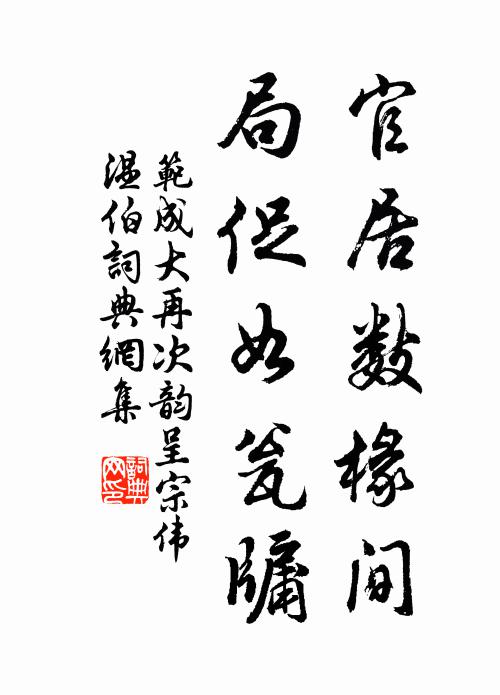 官居数椽间
局促如瓮牖
範成大再次韵呈宗伟
温伯詞典網集
詞典
网印